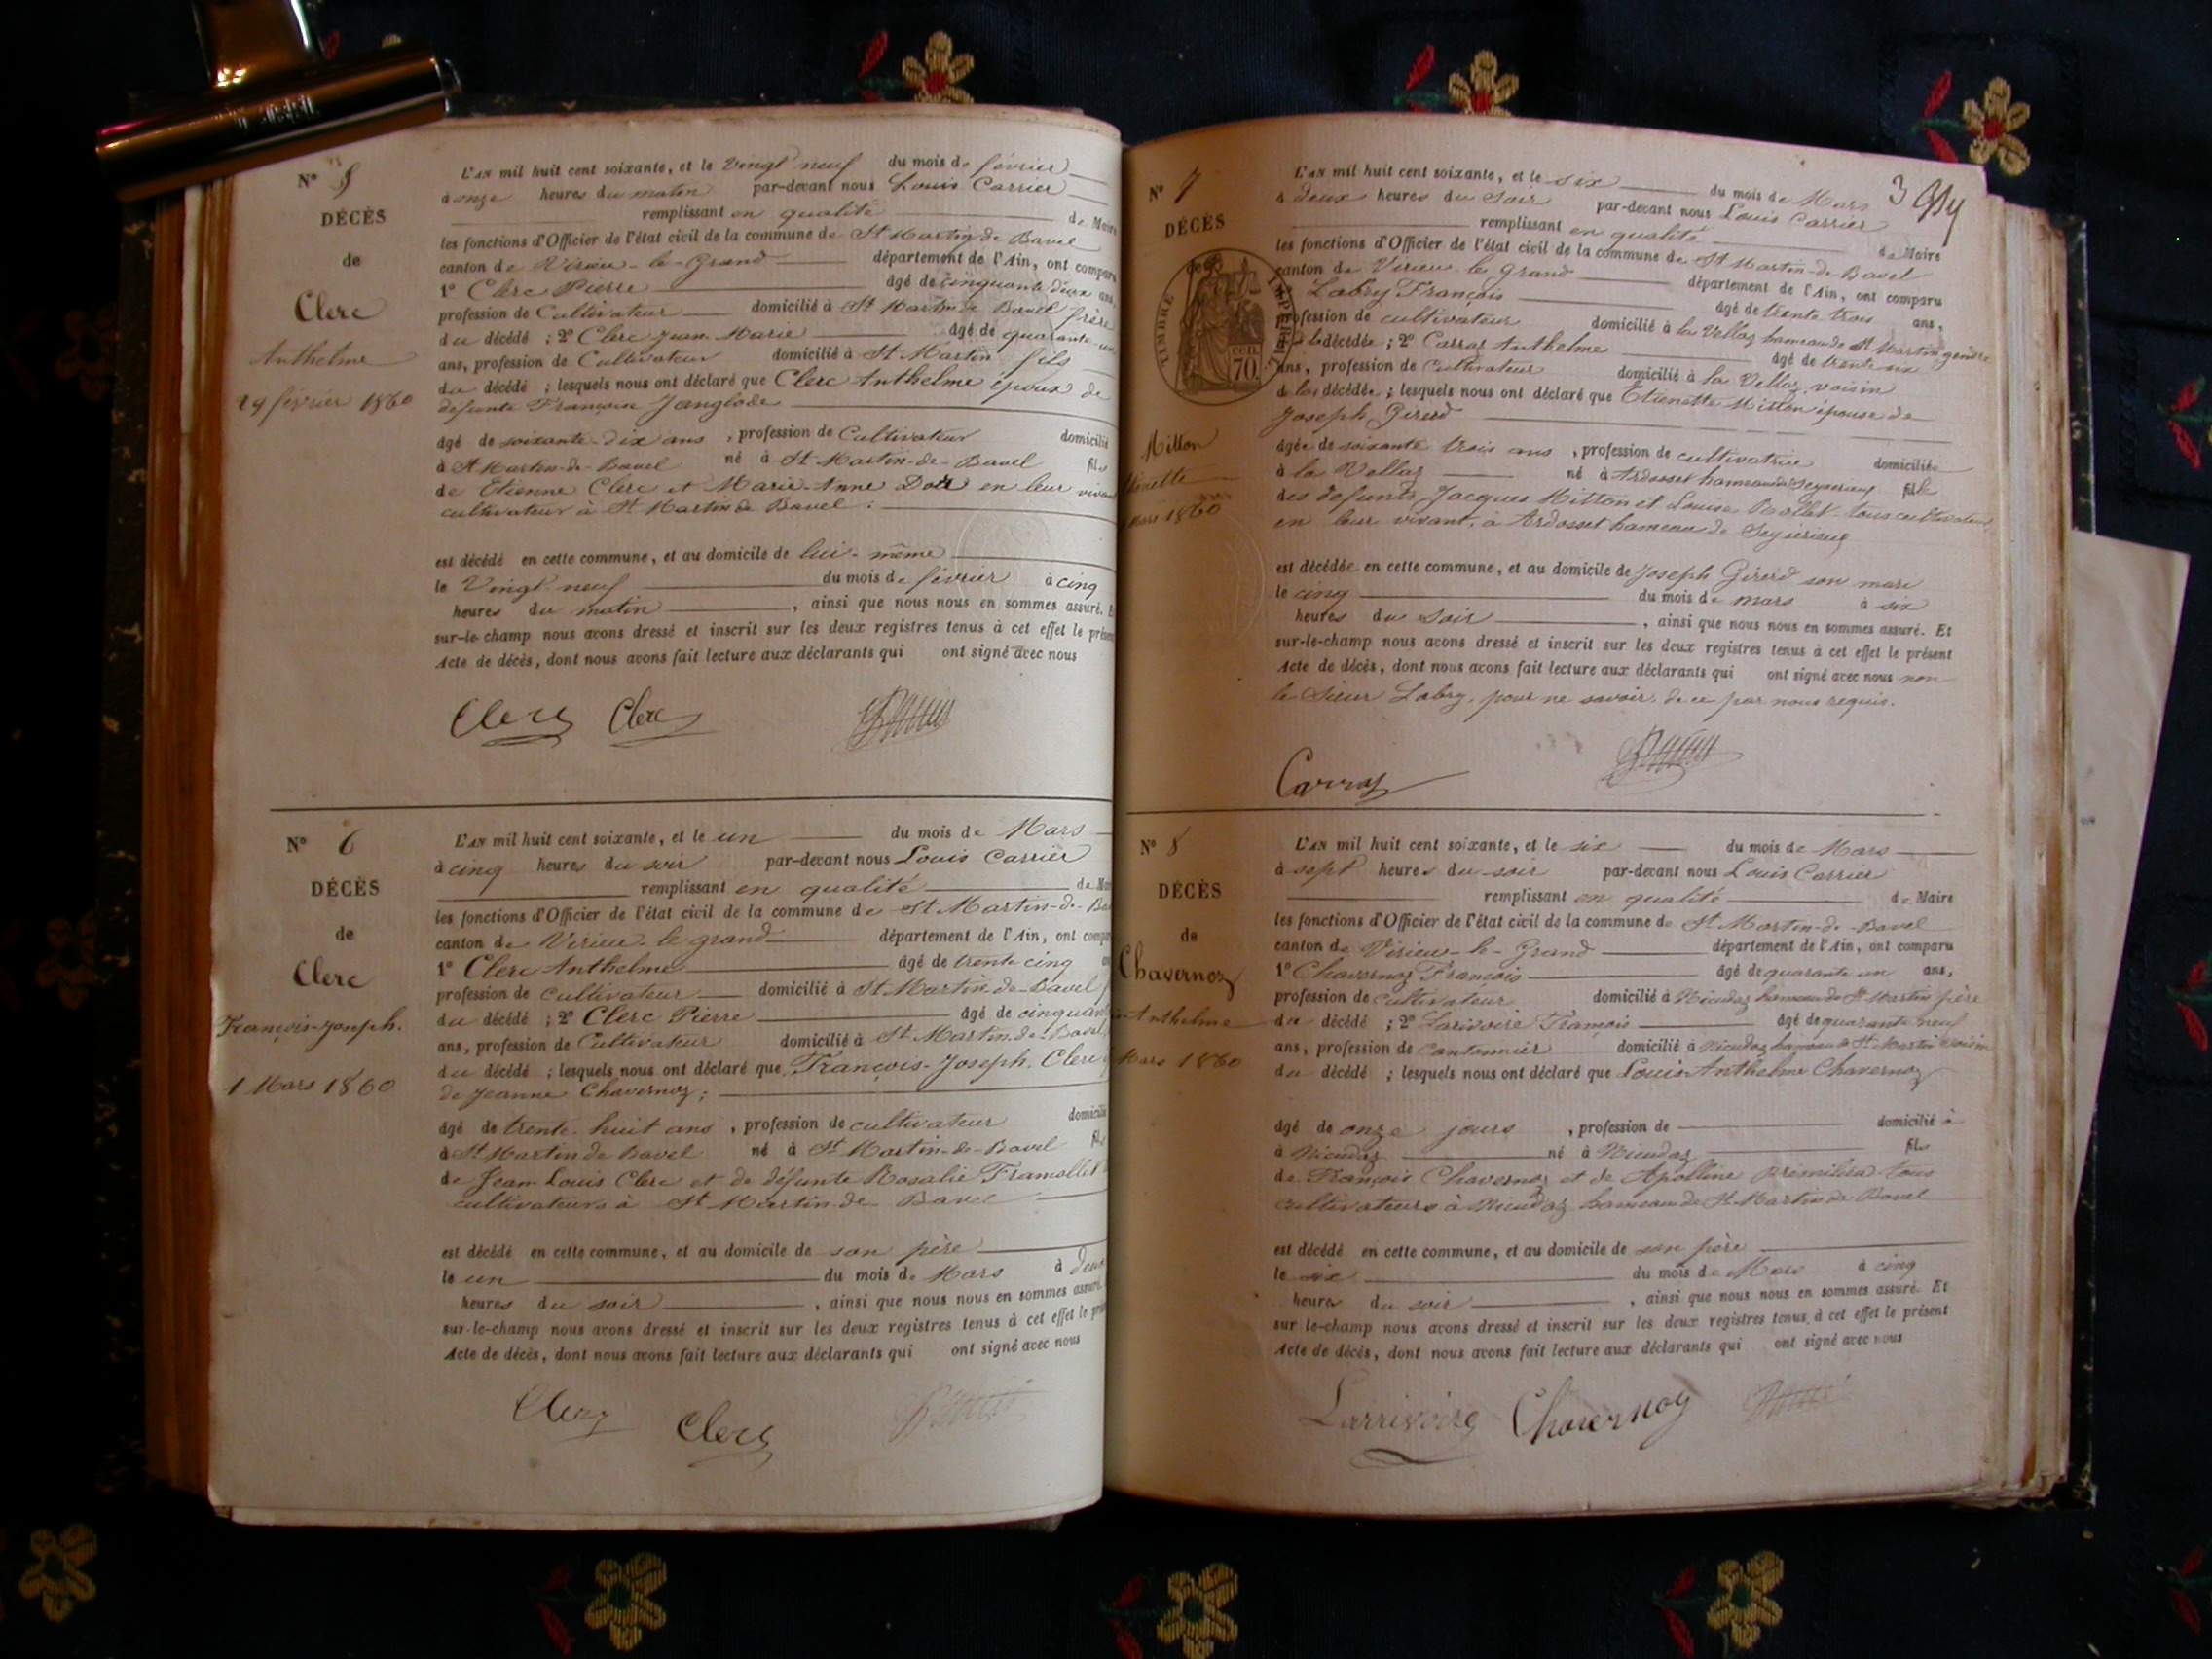 N° 5
DÉCÈS
de
Clerc
Anthelme
29 février 1860
L'AN mil huit cent soixante, et le Vingt neuf du mois de février
à onze heures du matin par-devant nous Louis Carrier
remplissant en qualité de Maire
les fonctions d'Officier de l'état civil de la commune de St Martin de Bavel
canton de Virieu-le-Grand département de l'Ain, ont comparu
1° Clerc Pierre âgé de cinquante deux ans,
profession de Cultivateur domicilié à St Martin de Bavel frère
du décédé ; 2° Clerc Jean Marie âgé de quarante un
ans, profession de Cultivateur domicilié à St Martin fils
du décédé ; lesquels nous ont déclaré que Clerc Anthelme époux de
défunte Françoise Janglode
âgé de soixante-dix ans , profession de Cultivateur domicilié
à St Martin-de-Bavel né à St Martin-de-Bavel fils
de Etienne Clerc et Marie-Anne en leur vivant
cultivateur à St Martin de Bavel .
est décédé en cette commune, et au domicile de lui-même
le Vingt-neuf du mois de février à cinq
heures du matin , ainsi que nous nous en sommes assuré. Et
sur-le-champ nous avons dressé et inscrit sur les deux registres tenus à cet effet le présent
Acte de décès, dont nous avons fait lecture aux déclarants qui ont signé avec nous
Clerc Clerc
N° 6
DÉCÈS
de
Clerc
François-Joseph.
1 Mars 1860
L'AN mil huit cent soixante, et le un du mois de Mars
à cinq heures du soir par-devant nous Louis Carrier
remplissant en qualité de Mai
les fonctions d'Officier de l'état civil de la commune de St Martin-de-Ba
canton de Virieu-le-grand département de l'Ain, ont compa
1° Clerc Anthelme âgé de trente cinq an
profession de Cultivateur domicilié à St Martin-de-Bavel f
du décédé ; 2° Clerc Pierre âgé de cinquant
ans, profession de Cultivateur domicilié à St Martin-de-Bavel
du décédé ; lesquels nous ont déclaré que François-Joseph Clerc
de Jeanne Chavernoz ;
âgé de trente-huit ans , profession de cultivateur domicilié
à St Martin de Bavel né à St Martin-de-Bavel fils
de Jean Louis Clerc et de défunte Rosalie Framollet
cultivateurs à St Martin-de-Bavel
est décédé en cette commune, et au domicile de son père
le un du mois de Mars à deux
heures du soir , ainsi que nous nous en sommes assuré.
sur-le-champ nous avons dressé et inscrit sur les deux registres tenus à cet effet le prés
Acte de décès, dont nous avons fait lecture aux déclarants qui ont signé avec nous
Clerc Clerc
3
N° 7
DÉCÈS
de
TIMBRE IMPERIAL
70
Mitton
1860
L'AN mil huit cent soixante, et le six du mois de Mars
à deux heures du soir par-devant nous Louis Carrier
remplissant en qualité de Maire
les fonctions d'Officier de l'état civil de la commune de St Martin-de-Bavel
canton de Virieu-le grand département de l'Ain, ont comparu
Labry François âgé de trente trois ans,
profession de cultivateur domicilié à la Vellaz hameau de St Martin gendre
de la décédée ; 2° Carraz Anthelme âgé de trente six
ans, profession de Cultivateur domicilié à la Vellaz, voisin
de la décédée ; lesquels nous ont déclaré que Etienette Mitton épouse de
Joseph Girerd
âgée de soixante trois ans , profession de cultivatrice domiciliée
à la Vellaz né à Ardosset hameau de fille
des défunts Jacques Mitton et Louise Rollet tous cultivateurs
en leur vivant, à Ardosset hameau de
est décédée en cette commune, et au domicile de Joseph Girerd son mari
le cinq du mois de mars à six
heures du soir , ainsi que nous nous en sommes assuré. Et
sur-le-champ nous avons dressé et inscrit sur les deux registres tenus à cet effet le présent
Acte de décès, dont nous avons fait lecture aux déclarants qui ont signé avec nous non
le Sieur Labry, pour ne savoir, de ce par nous requis.
Carraz
N° 8
DÉCÈS
de
Chavernoz
Anthelme
Mars 1860
L'AN mil huit cent soixante, et le six du mois de Mars
à sept heures du soir par-devant nous Louis Carrier
remplissant en qualité de Maire
les fonctions d'Officier de l'état civil de la commune de St Martin-de-Bavel
canton de Virieu-le-Grand département de l'Ain, ont comparu
1° Chavernoz François âgé de quarante un ans,
profession de Cultivateur domicilié à hameau de St Martin père
du décédé ; 2° Larivoire François âgé de quarante neuf
ans, profession de Cantonnier domicilié à hameau de St Martin voisin
du décédé ; lesquels nous ont déclaré que Louis Anthelme Chavernoz
âgé de onze jours , profession de domicilié à
à né à fils
de François Chavernoz et de Apolline tous
cultivateurs à hameau de St Martin de Bavel
est décédé en cette commune, et au domicile de son père
le six du mois de Mars à cinq
heures du soir , ainsi que nous nous en sommes assuré. Et
sur le-champ nous avons dressé et inscrit sur les deux registres tenus à cet effet le présent
Acte de décès, dont nous avons fait lecture aux déclarants qui ont signé avec nous
Larrivoire Chavernoz